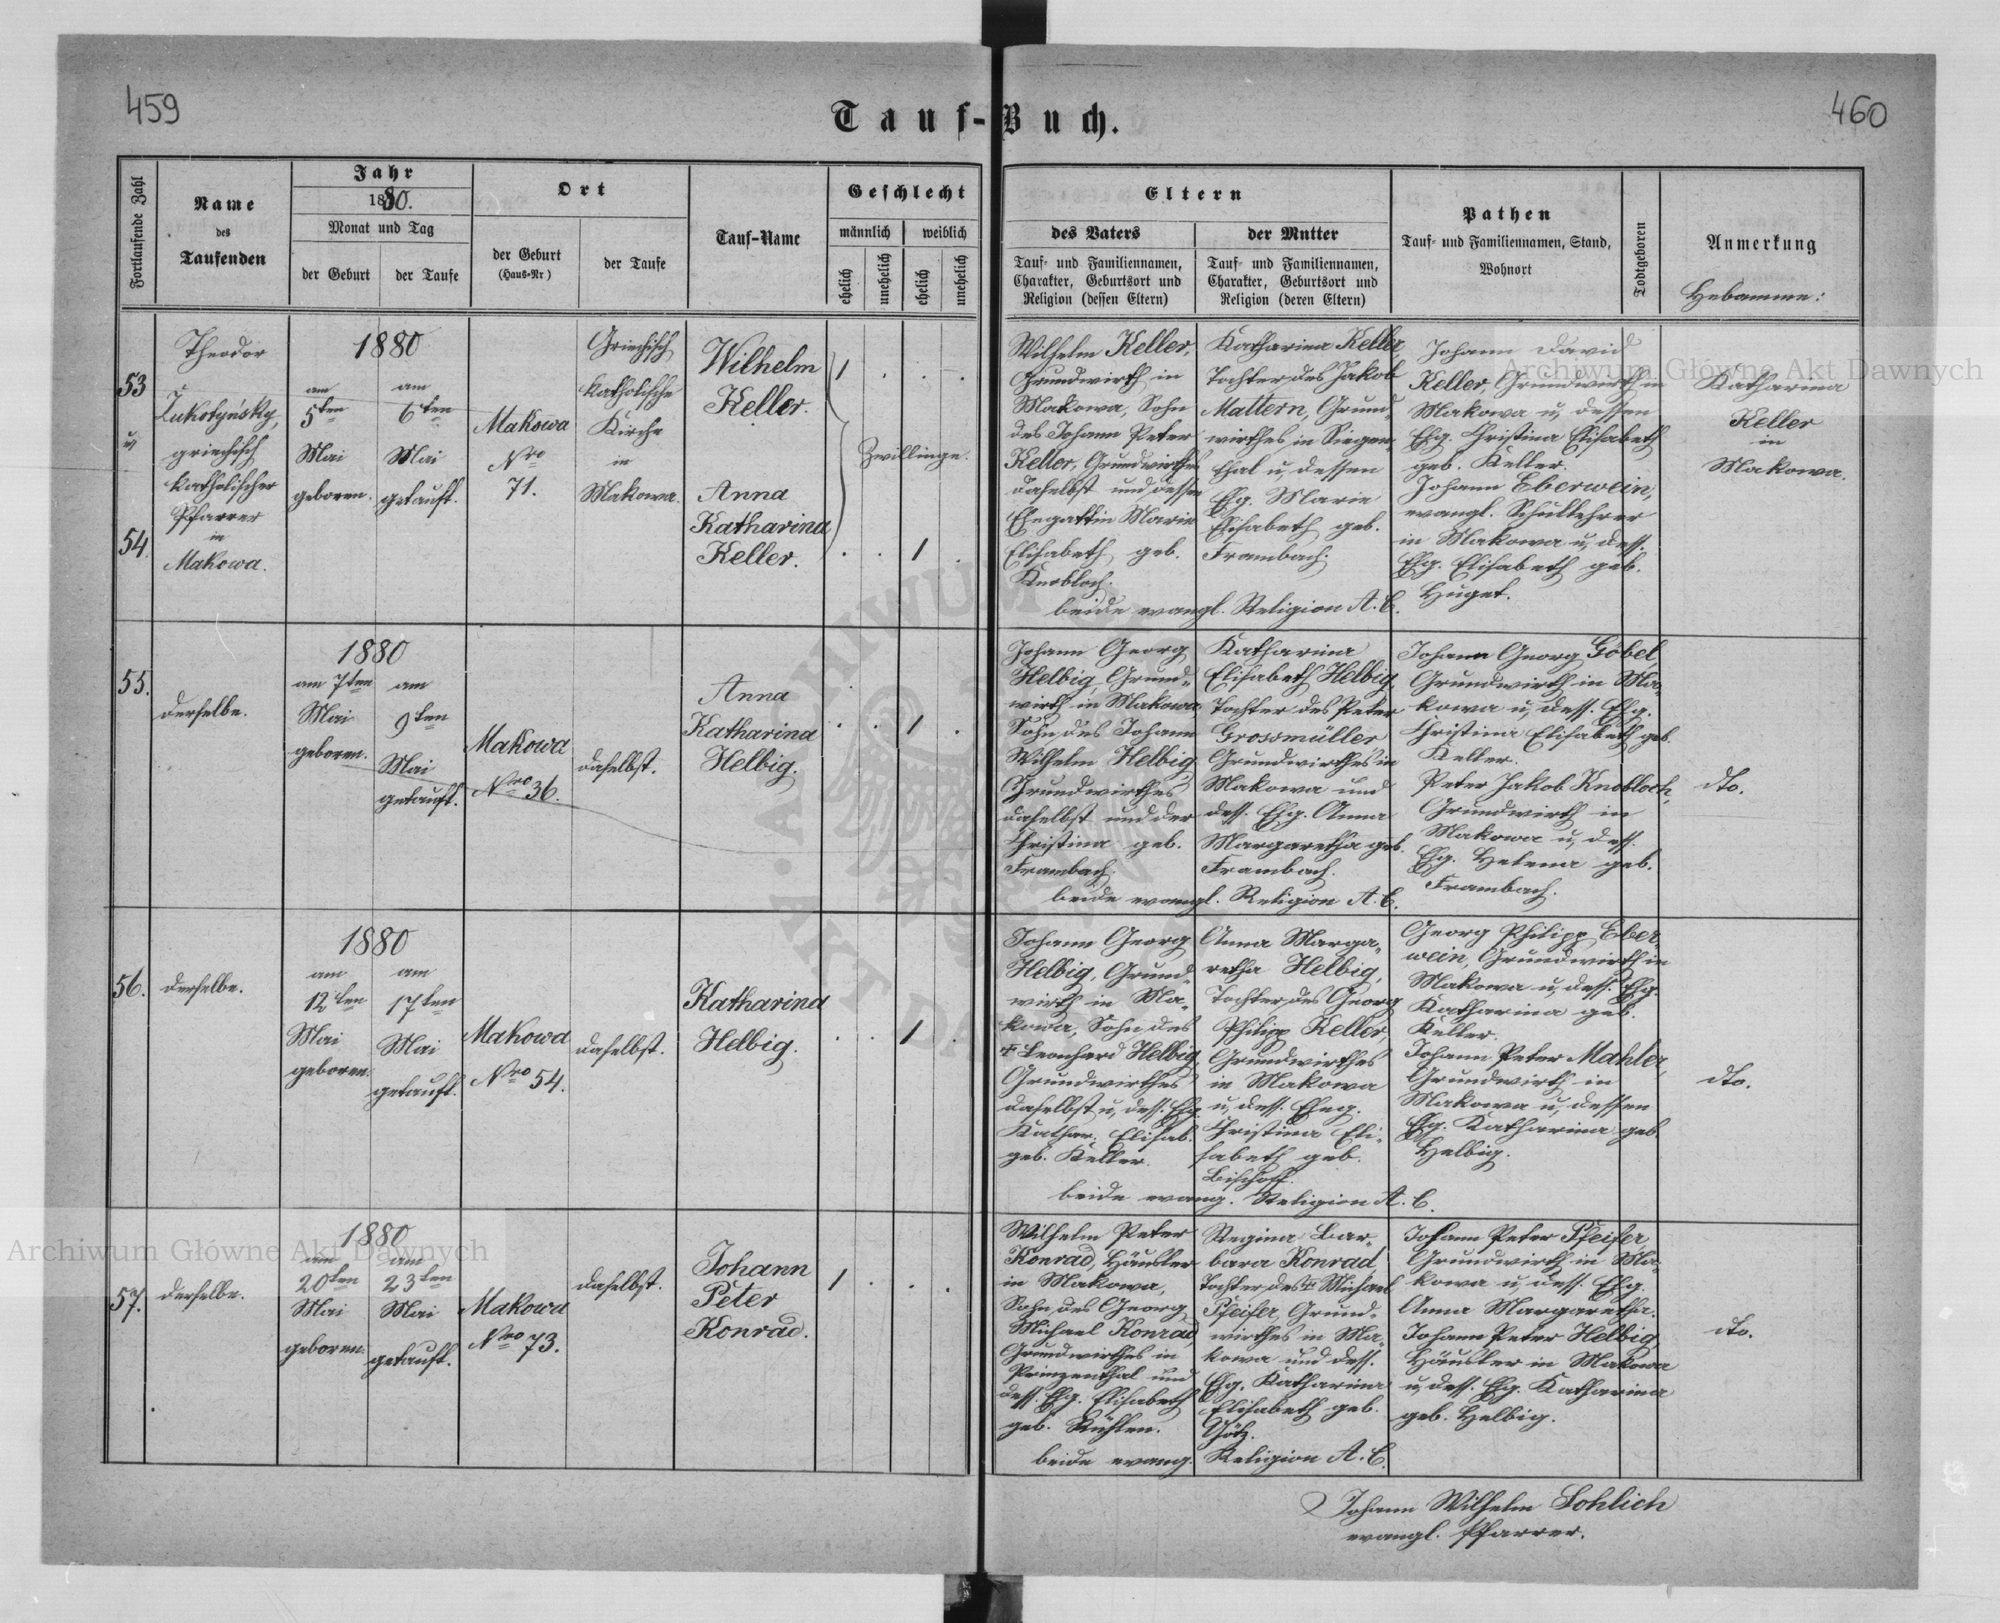 459
460
Tauf-Buch.
Fortlaufende Zahl
Name
des
Taufenden
Jahr
1880.
Monat und Tag
der Geburt
der Taufe
Ort
der Geburt
(Haus-Nr)
der Taufe
Tauf-Name
Geschlecht
männlich
weiblich
ehelich
unehelich
ehelich
unehelich
Eltern
des Vaters
Tauf- und Familiennamen,
Charakter, Geburtsort und
Religion (dessen Eltern)
der Mutter
Tauf- und Familiennamen,
Charakter, Geburtsort und
Religion (deren Eltern)
Pathen
Tauf- und Familiennamen, Stand,
Wohnort
Todtgeboren
Anmerkung
Hebamme:
53
u,
54.
Theodor
Lukotyńsky,
griechisch
katholischer
Pfarrer
in
Makowa.
1880
am
5ten
Mai
geboren.
am
6ten
Mai
getauft.
Makowa
Nro
71.
Griechisch
katholische
Kirche
in
Makowa.
Wilhelm
Keller.
1
Zwillinge.
Anna
Katharina
Keller.
1
Wilhelm Keller,
Grundwirth in
Makowa, Sohn
des Johann Peter
Keller, Grundwirthes
daselbst und dessen
Ehegattin Marie
Elisabeth, geb.
Knobloch.
Katharina Keller,
Tochter des Jakob
Mattern, Grund-
wirthes in Siegen-
thal u, dessen
Ehg. Marie
Elisabeth geb.
Frambach.
beide evangl. Religion A. C.
Johann David
Keller Grundwirth in
Makowa u, dessen
Ehg. Christina Elisabeth
geb. Keller.
Johann Eberwein,
evangl. Schullehrer
in Makowa u, dess.
Ehg. Elisabeth geb.
Huget.
Katharina
Keller
in
Makowa.
55.
derselbe.
1880
am 7ten
Mai
geboren.
am
9ten
Mai
getauft.
Makowa
Nro 36.
daselbst.
Anna
Katharina
Helbig.
1
Johann Georg
Helbig, Grund-
wirth in Makowa,
Sohn des Johann
Wilhelm Helbig,
Grundwirthes
daselbst und der
Christina geb.
Frambach.
Katharina
Elisabeth Helbig,
Tochter des Peter
Grossmüller
Grundwirthes in
Makowa und
dess. Ehg. Anna
Margaretha geb.
Frambach.
beide evangl. Religion A. C.
Johann Georg Göbel,
Grundwirth in Ma-
kowa u, dess. Ehg.
Christina Elisabeth geb.
Keller.
Peter Jakob Knobloch,
Grundwirth in
Makowa u, dess.
Ehg. Helena geb.
Frambach.
dto.
56.
derselbe.
1880
am
12ten
Mai
geboren.
am
17ten
Mai
getauft.
Makowa
Nro 54.
daselbst.
Katharina
Helbig.
1
Johann Georg
Helbig, Grund-
wirth in Ma-
kowa, Sohn des
Leonhard Helbig,
Grundwirthes
daselbst u, dess. Ehg.
Kathar. Elisab.
geb. Keller.
Anna Marga-
retha Helbig,
Tochter des Georg
Philipp Keller,
Grundwirthes
in Makowa
u, dess. Eheg.
Christina Eli-
sabeth geb.
Bischoff.
beide evang. Religion A. C.
Georg Philipp Eber-
wein, Grundwirth in
Makowa u, dess. Ehg.
Katharina geb.
Keller.
Johann Peter Mahler,
Grundwirth in
Makowa u, dessen
Ehg. Katharina geb.
Helbig.
dto.
57.
derselbe.
1880
am
20ten
Mai
geboren.
am
23ten
Mai
getauft.
Makowa
Nro 73.
daselbst.
Johann
Peter
Konrad.
1
Wilhelm Peter
Konrad, Häusler
in Makowa,
Sohn des Georg
Michael Konrad,
Grundwirthes in
Prinzenthal und
dess. Ehg. Elisabeth
geb.
Regina Bar-
bara Konrad
Tochter des Michael
Pfeifer, Grund-
wirthes in Ma-
kowa und dess.
Ehg. Katharina
Elisabeth geb.
Götz.
beide evang. Religion A. C.
Johann Peter Pfeifer,
Grundwirth in Ma-
kowa u, dess. Ehg.
Anna Margaretha.
Johann Peter Helbig,
Häusler in Makowa
u, dess. Ehg. Katharina
geb. Helbig.
dto.
Johann Wilhelm Lohlich
evangl. Pfarrer.
Archiwum Główne Akt Dawnych
Archiwum Główne Akt Dawnych